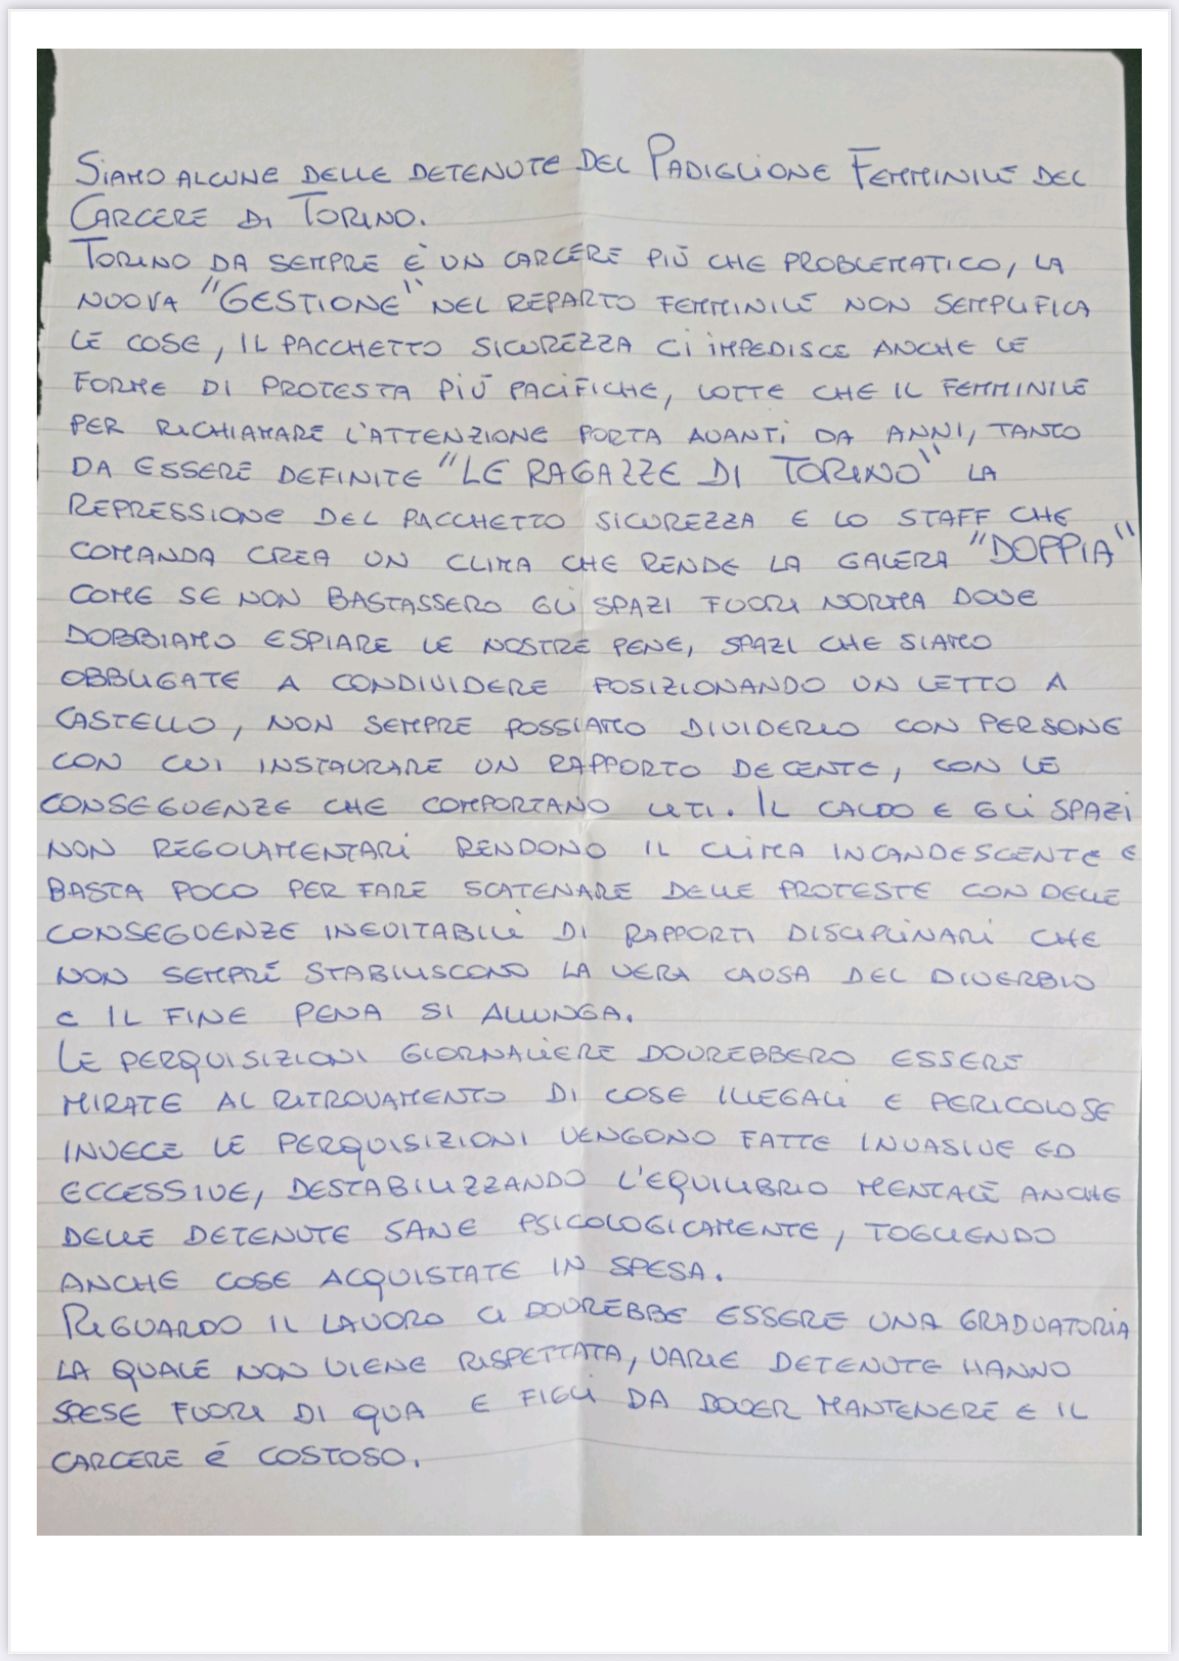 SIAMO ALCUNE DELLE DETENUTE DEL PADIGLIONE FEMMINILE DEL
CARCERE DI TORINO.
TORINO DA SEMPRE È UN CARCERE PIÙ CHE PROBLEMATICO, LA
NUOVA "GESTIONE" NEL REPARTO FEMMINILE NON SEMPLIFICA
LE COSE, IL PACCHETTO SICUREZZA CI IMPEDISCE ANCHE LE
FORME DI PROTESTA PIÙ PACIFICHE, LOTTE CHE IL FEMMINILE
PER RICHIAMARE L'ATTENZIONE PORTA AVANTI DA ANNI, TANTO
DA ESSERE DEFINITE "LE RAGAZZE DI TORINO" LA
REPRESSIONE DEL PACCHETTO SICUREZZA E LO STAFF CHE
COMANDA CREA UN CLIMA CHE RENDE LA GALERA "DOPPIA"
COME SE NON BASTASSERO GLI SPAZI FUORI NORMA DOVE
DOBBIAMO ESPIARE LE NOSTRE PENE, SPAZI CHE SIAMO
OBBLIGATE A CONDIVIDERE POSIZIONANDO UN LETTO A
CASTELLO, NON SEMPRE POSSIAMO DIVIDERLO CON PERSONE
CON CUI INSTAURARE UN RAPPORTO DECENTE, CON LE
CONSEGUENZE CHE COMPORTANO LITI. IL CALDO E GLI SPAZI
NON REGOLAMENTARI RENDONO IL CLIMA INCANDESCENTE E
BASTA POCO PER FARE SCATENARE DELLE PROTESTE CON DELLE
CONSEGUENZE INEVITABILI DI RAPPORTI DISCIPLINARI CHE
NON SEMPRE STABILISCONO LA VERA CAUSA DEL DIVERBIO
E IL FINE PENA SI ALLUNGA.
LE PERQUISIZIONI GIORNALIERE DOVREBBERO ESSERE
MIRATE AL RITROVAMENTO DI COSE ILLEGALI E PERICOLOSE
INVECE LE PERQUISIZIONI VENGONO FATTE INVASIVE ED
ECCESSIVE, DESTABILIZZANDO L'EQUILIBRIO MENTALE ANCHE
DELLE DETENUTE SANE PSICOLOGICAMENTE, TOGLIENDO
ANCHE COSE ACQUISTATE IN SPESA.
RIGUARDO IL LAVORO CI DOVREBBE ESSERE UNA GRADUATORIA
LA QUALE NON VIENE RISPETTATA, VARIE DETENUTE HANNO
SPESE FUORI DI QUA E FIGLI DA DOVER MANTENERE E IL
CARCERE É COSTOSO.